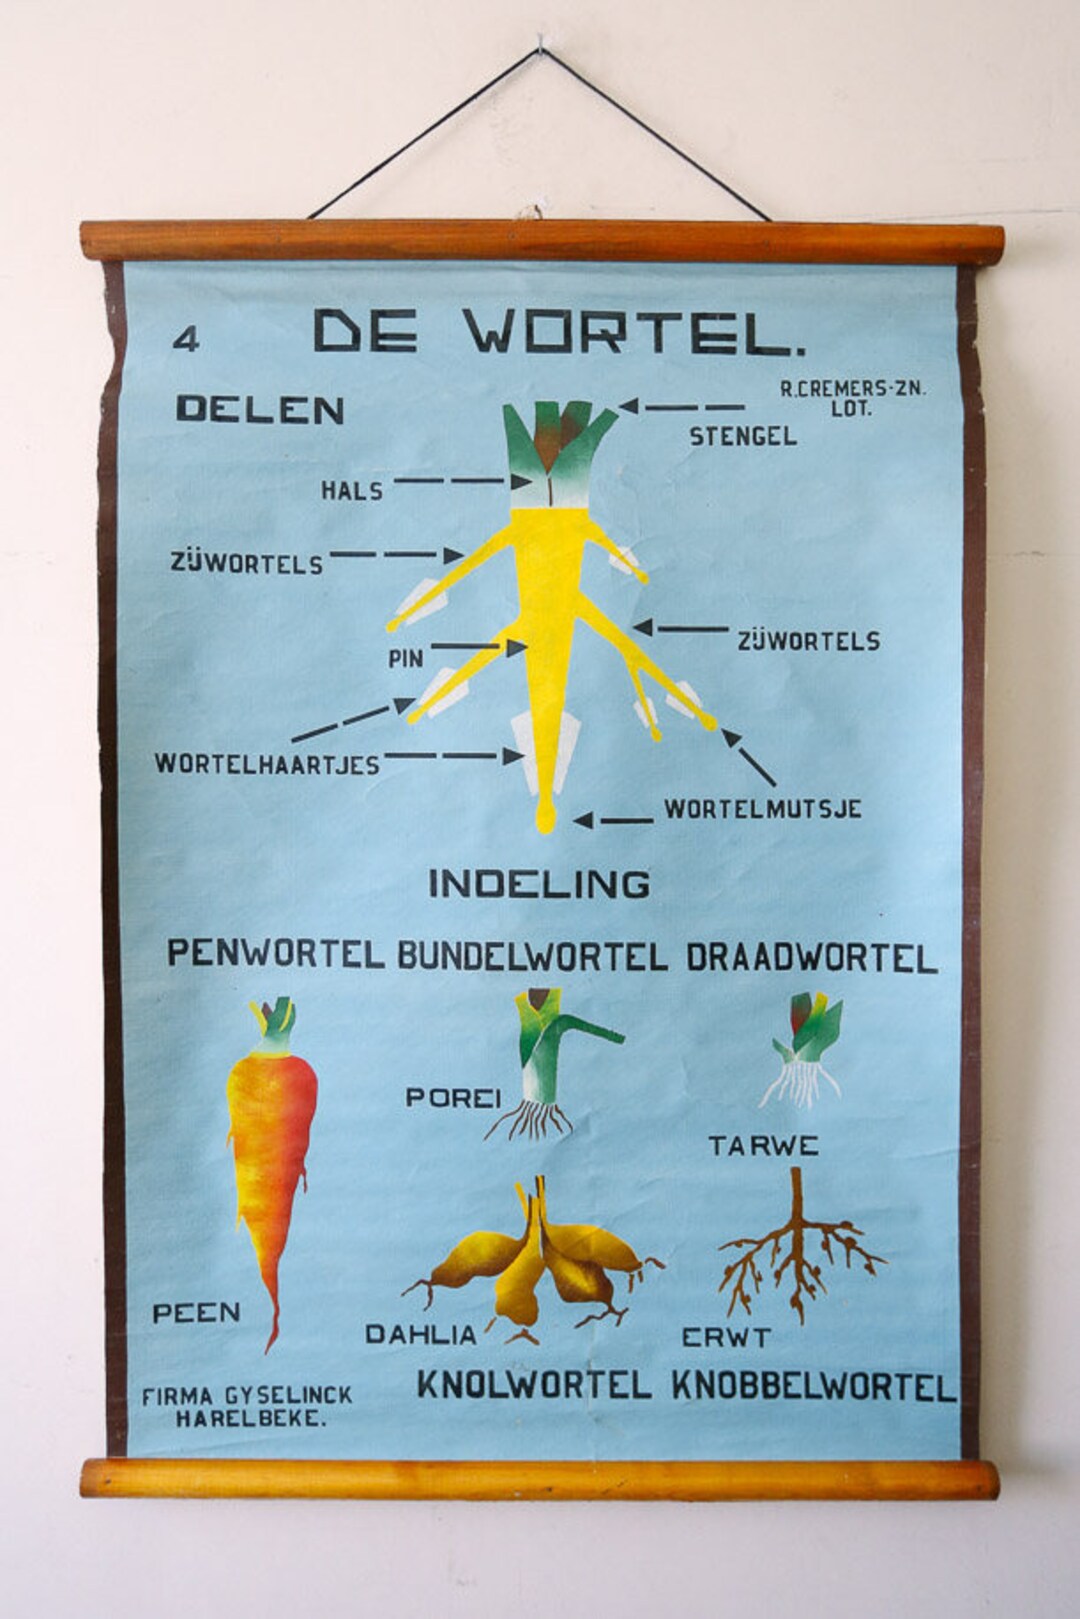 4
DE WORTEL.
DELEN
R.CREMERS-ZN.
LOT.
STENGEL
HALS
ZIJWORTELS
ZIJWORTELS
PIN
WORTELHAARTJES
WORTELMUTSJE
INDELING
PENWORTEL BUNDELWORTEL DRAADWORTEL
POREI
TARWE
PEEN
DAHLIA
ERWT
KNOLWORTEL KNOBBELWORTEL
FIRMA GYSELINCK
HARELBEKE.